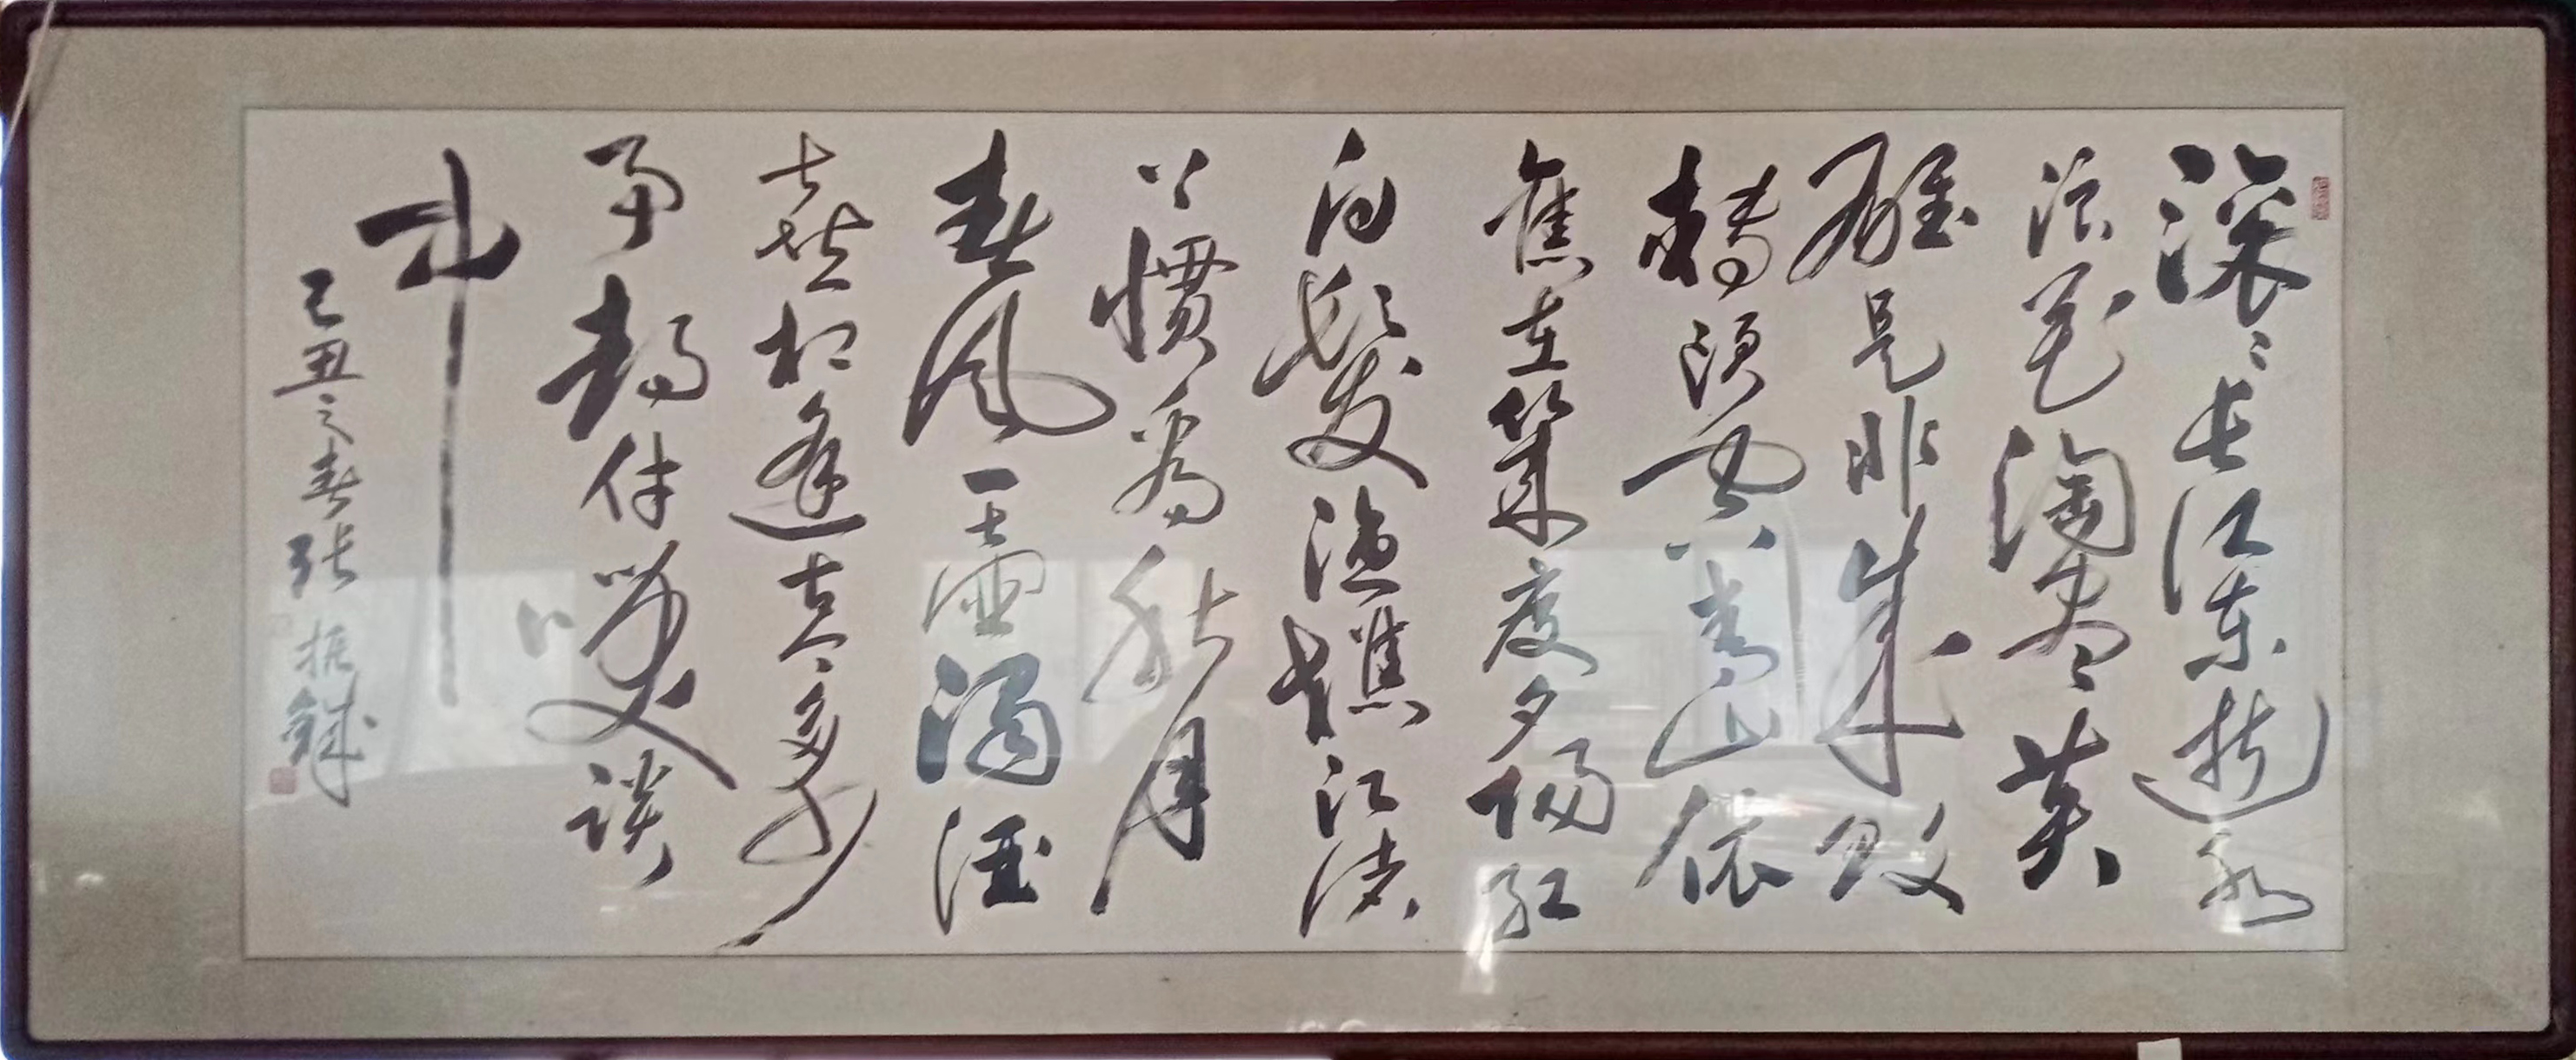 滚滚长江东逝水
浪花淘尽英
雄是非成败
轉头空青山依
舊在幾度夕阳红
白髮渔樵江渚
上惯看秋月
春风一壶浊酒
喜相逢古今多少
事都付笑谈
中
己丑之春张振